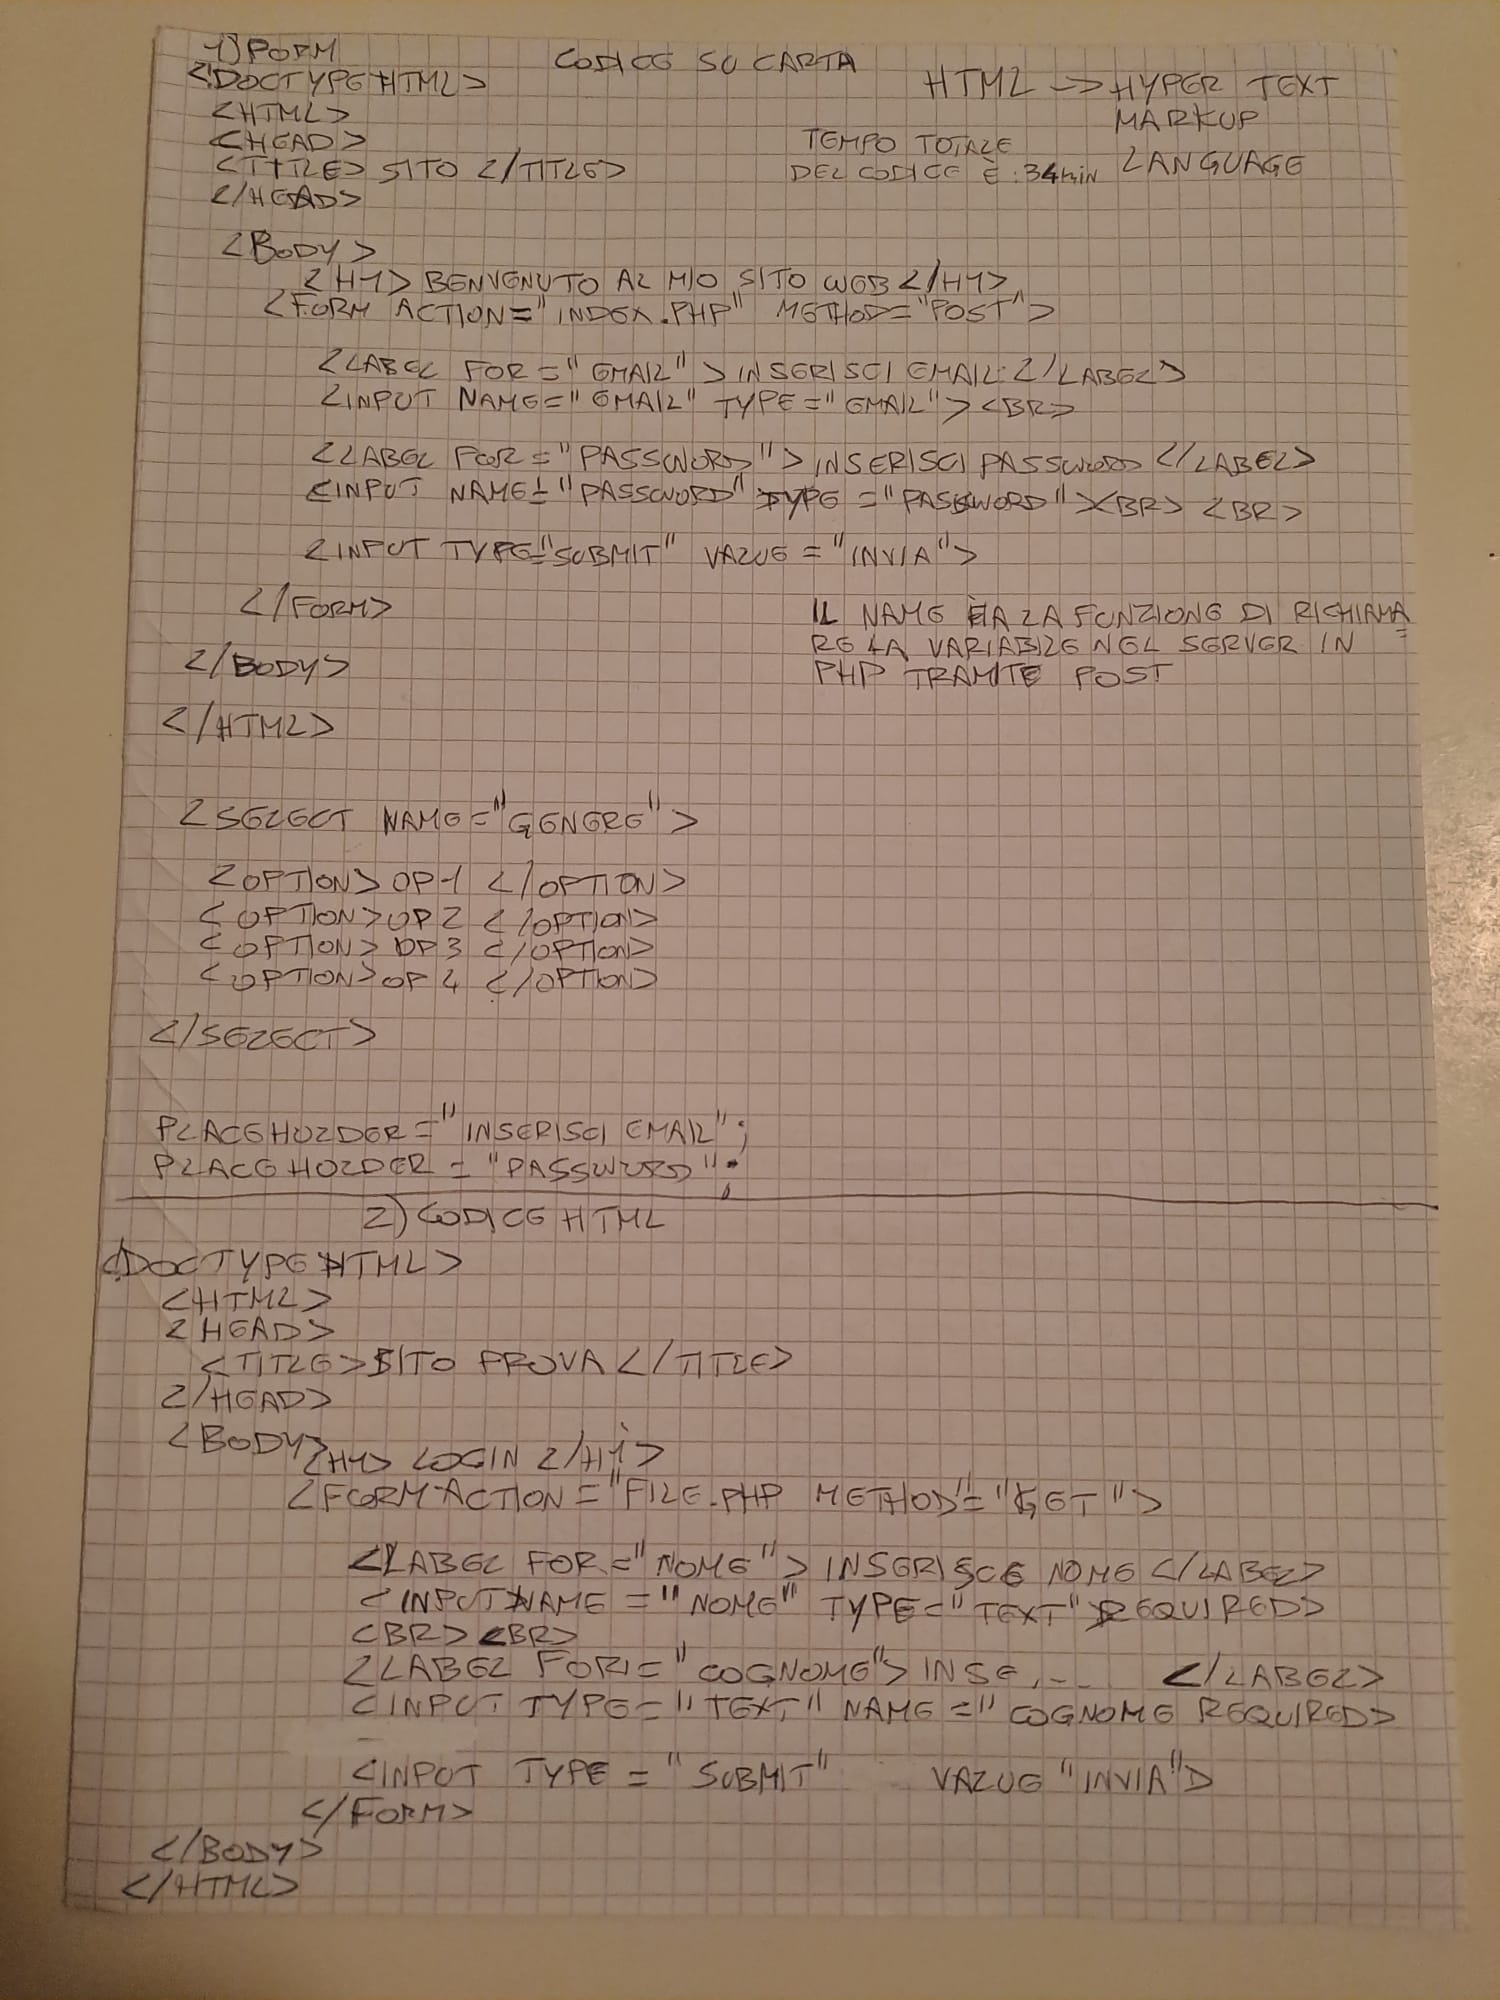 1) FORM
CODICE SU CARTA
<!DOCTYPE HTML>
HTML -> HYPER TEXT
MARKUP
LANGUAGE
<HTML>
<HEAD>
TEMPO TOTALE
DEL CODICE È: 34 min
<TITLE> SITO </TITLE>
</HEAD>
<BODY>
<H1> BENVENUTO AL MIO SITO WEB </H1>
<FORM ACTION="INDEX.PHP" METHOD="POST">
<LABEL FOR="EMAIL"> INSERISCI EMAIL: </LABEL>
<INPUT NAME="EMAIL" TYPE="EMAIL"><BR>
<LABEL FOR="PASSWORD"> INSERISCI PASSWORD </LABEL>
<INPUT NAME="PASSWORD" TYPE="PASSWORD"><BR> <BR>
<INPUT TYPE="SUBMIT" VALUE="INVIA">
</FORM>
IL NAME HA LA FUNZIONE DI RICHIAMA=
RE LA VARIABILE NEL SERVER IN
PHP TRAMITE POST
</BODY>
</HTML>
<SELECT NAME="GENERE">
<OPTION> OP1 </OPTION>
<OPTION> OP2 </OPTION>
<OPTION> OP3 </OPTION>
<OPTION> OP4 </OPTION>
</SELECT>
PLACEHOLDER="INSERISCI EMAIL";
PLACEHOLDER="PASSWORD";
2) CODICE HTML
<!DOCTYPE HTML>
<HTML>
<HEAD>
<TITLE> SITO PROVA </TITLE>
</HEAD>
<BODY>
<H1> LOGIN </H1>
<FORM ACTION="FILE.PHP METHOD"="GET">
<LABEL FOR="NOME"> INSERISCE NOME </LABEL>
<INPUT NAME="NOME" TYPE="TEXT" REQUIRED>
<BR> <BR>
<LABEL FOR="COGNOME"> INSE... </LABEL>
<INPUT TYPE="TEXT" NAME="COGNOME REQUIRED>
<INPUT TYPE="SUBMIT" VALUE "INVIA">
</FORM>
</BODY>
</HTML>